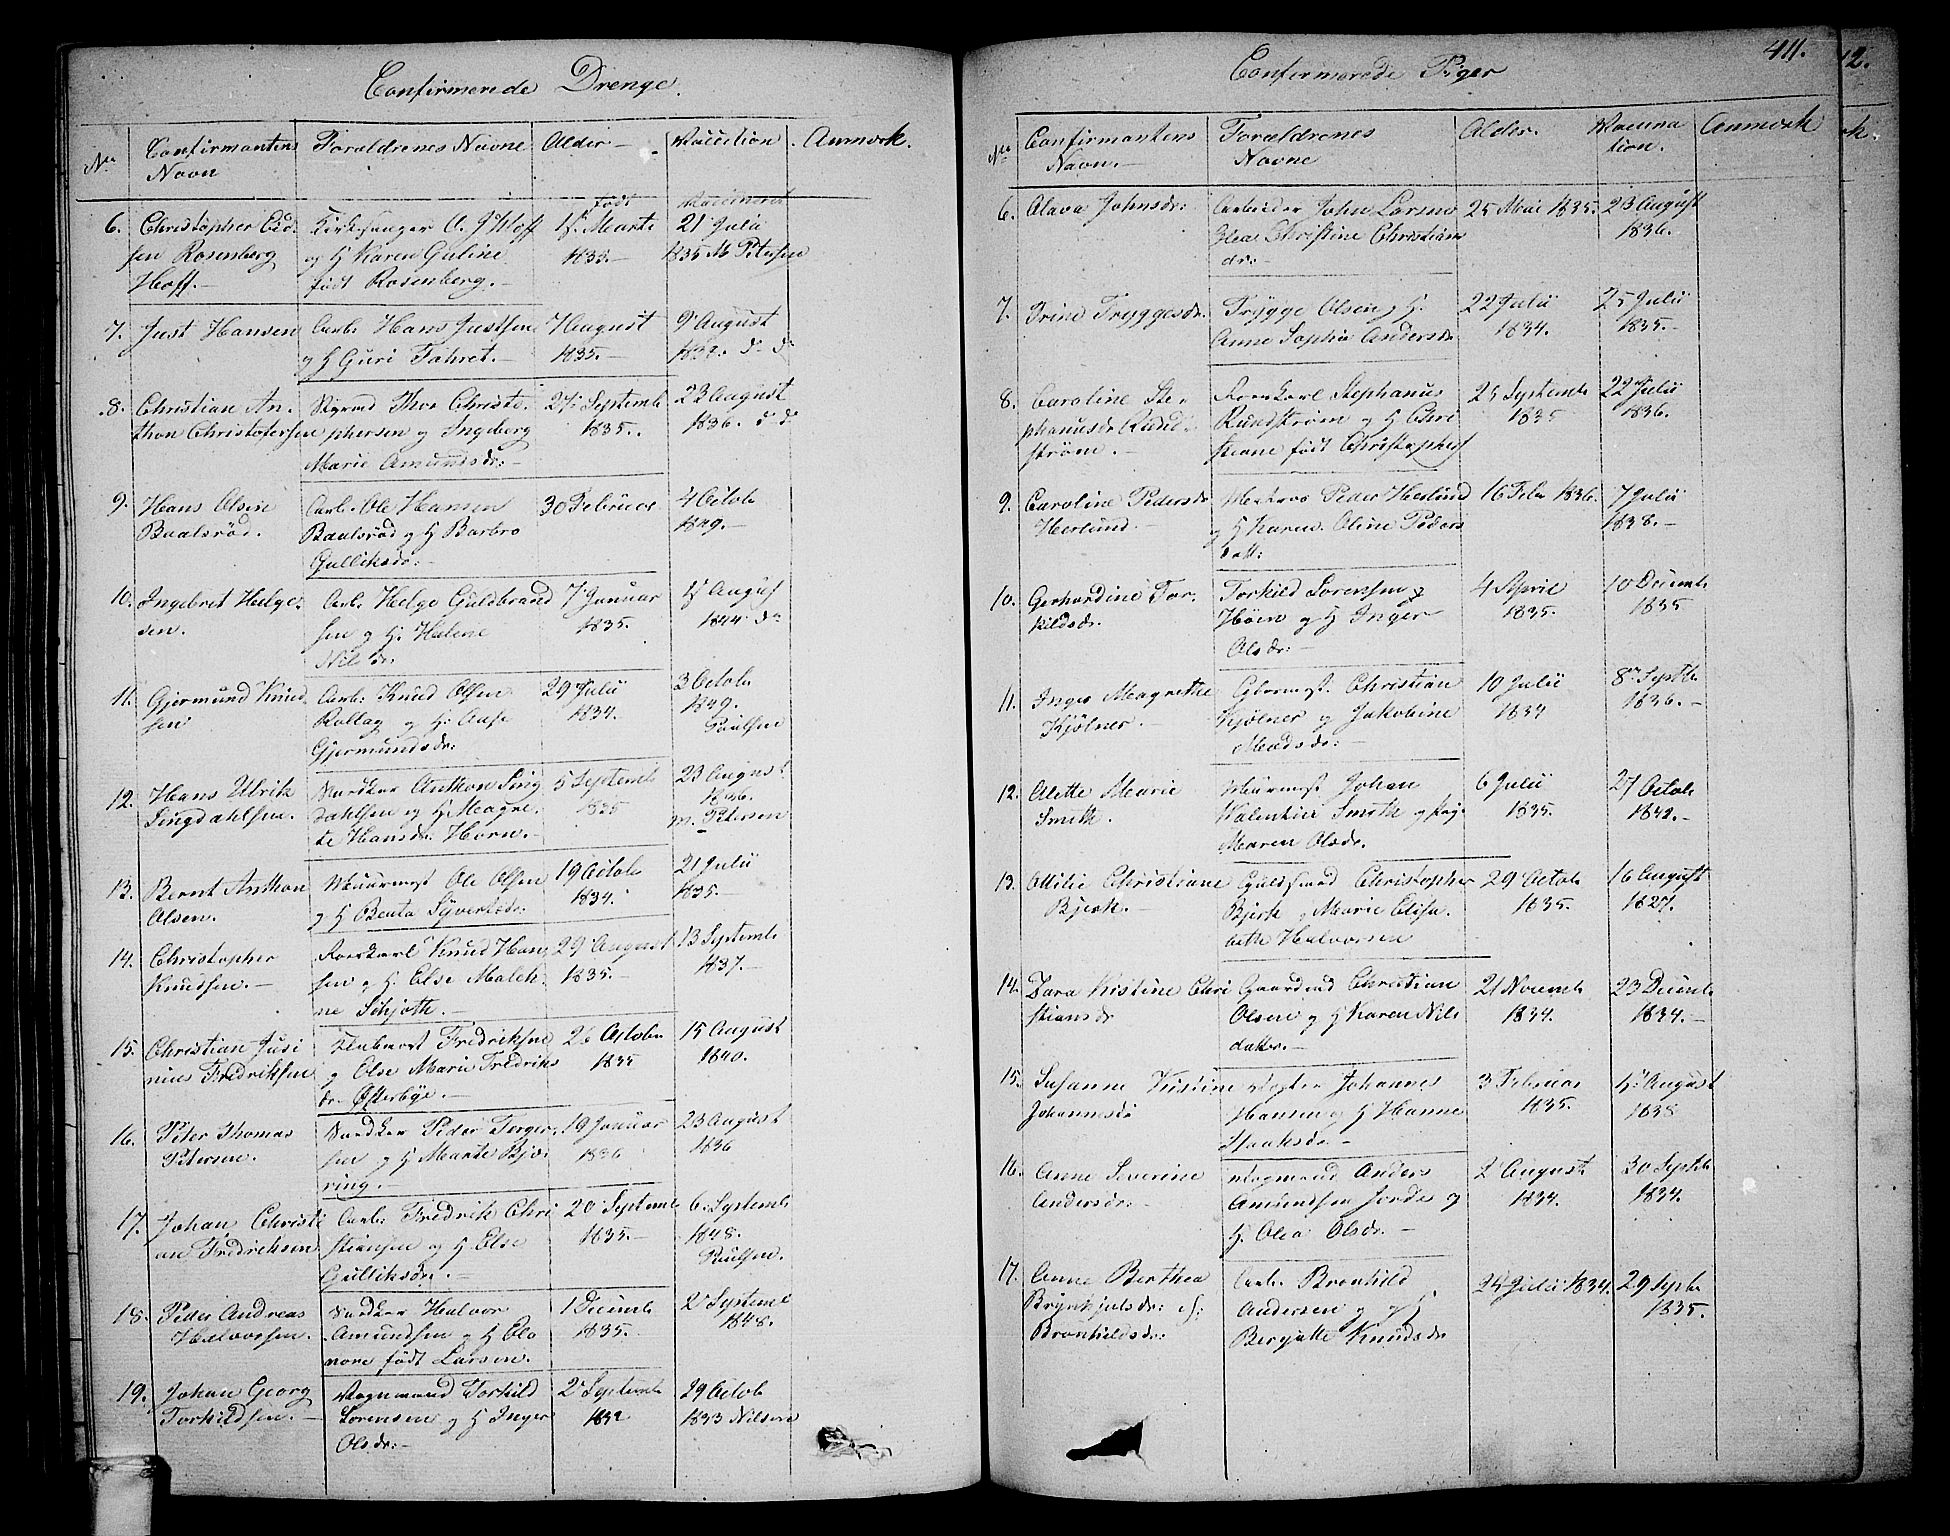 Confirmerede Drenge.
No
Confirmantens Navn
Forældrenes Navne
Alder
Vaccition
Anmærk.
født
Vaccineret
6. Christopher Ed-
sen Rosenberg
Hoff.
Kirkesanger O. J. Hoff
og H Karen Guline
født Rosenberg.
15 Marts
1835.
21 Julii
1835 M Petersen
7. Just Hansen
Arb. Hans Justsen
og H Guri Fahret.
7 August
1835.
9 August
d d
8. Christian An-
thon Christofersen
Thor Christo-
phersen og Ingeberg
Marie Amundsdr:
Septemb
1835.
23 August
1836. d d
9. Hans Olsen
Baalsrød.
Arb. Ole Hansen
Baalsrød og H Barbro
Gulliksdr:
30 Februar
4 Octob
1849.
10. Ingebret Helge-
sen.
Arb. Helge Guldbrand
sen og H. Helene
Nilsdr:
7 Januar
1835.
15 August
1844 do
11. Gjermund Knud
sen
Arb. Knud Olsen
Rollag og H: Aase
Gjermundsdr:
29 Julii
1834.
3 Octob
1849.
Paulsen
12. Hans Ulrik
Lingdahlsen.
Anthon Ling
dahlsen og H Magre-
te Hansdr: Horn.
5 Septemb
1835
23 August
1836.
m. Petersen
13. Bernt Anthon
Olsen.
Muurmest Ole Olsen
og H Benta Syvertsdr:
19 Octob
1834.
21 Julii
1835.
14. Christopher
Knudsen.
Forekarl Knud Han-
sen og H. Else Maleh
ne Schjøtte.
29 August
1835.
13 Septemb
1837.
15. Christian Jusi
nius Fredriksen
Fredriksen
og Else Marie Fredriks
dr. Østerbye.
26 Octob
1835
15 August
1840.
16. Peter Thomas
Petersen.
Peder Torger-
sen og H Marte Bjø-
ring.
19 Januar
1836
23 August
1836
17. Johan Christi
an Fredriksen
Arb. Fredrik Chri
stiansen og H Else
Gulliksdr.
20 Septemb
1835.
6. Septemb
1848.
Paulsen.
18. Peder Andreas
Halvorsen.
Halvor
Amundsen og H Elo
nore født Larsen.
1 Decemb
1835.
2 Septemb
1848.
19. Johan Georg
Torkildsen.
Vognmand Torkild
Sorensen og H Inger
Olsdr:
2 Septemb
29 Octob
1833 Nilsen
Confirmerede Piger
411.
12.
No
Confirmantens
Navn.
Forældrenes
Navne
Alder.
Vaccina
tion.
Anmærk
k.
6. Olava Johnsdr:
Arbeider John Larsen
Olea Christine Christians
dr:
25 Mai 1835.
23 August
1836.
7. Trine Tryggesdr.
Trygge Olsen og H.
Anne Sophia Andersdr
22 Julii
1834.
25 Julii
1835.
8. Caroline Ste-
phanusdr. Rund-
strøm.
Forekarl Stephanus
Rundstrøm og H Chri
stiane født Christophers
25 Septemb
1835
22 Julii
1836.
9. Caroline Pedersdr
Herlund.
Peder Herlund
og H Karen Oline Peders
datt:
16 Febr 1836.
7 Julii
1838.
10. Gerhardine Tor-
kildsdr.
Torkild Sorensen
Høien og H Inger
Olsdr:
4 April
1835.
10 Decemb
1835
11. Inger Magrethe
Kjølner.
Christian
Kjølner og Jakobine
Madsdr:
10 Julii
1834
8 Septb
1836.
12. Alette Marie
Smith.
Muurmest Johan
Valentin Smith og
Maren Olsdr.
6 Julii
1835.
27 Octob
1842.
13. Ottilie Christiane
Bjerk.
Guldsmed Christopher
Bjerk og Marie Elisa-
beth Halvorsen
29 Octob
1835.
16 August
14. Dara Kristine Chri
stiansdr
Gaardmd Christian
Olsen og H Karen Nils
datter.
21 Novemb
1834.
23 Decemb
1834.
15. Susanne Kristine
Johannesdr
Vægter Johannes
Hansen og H Hanne
Isaaksdr.
3 Februar
1835.
15 August
1838
16. Anne Severine
Andersdr:
Vognmand Anders
Amundsen Jorde og
H. Olea Olsdr.
2 August
1834.
30 Septb
1834.
17. Anne Berthea
Brynhjulsdr: el:
Bronhildsdr:
Arb. Bronhild
Andersen og H
Bergitte Knudsdr
24 Julii 1834.
29 Septb
1835.